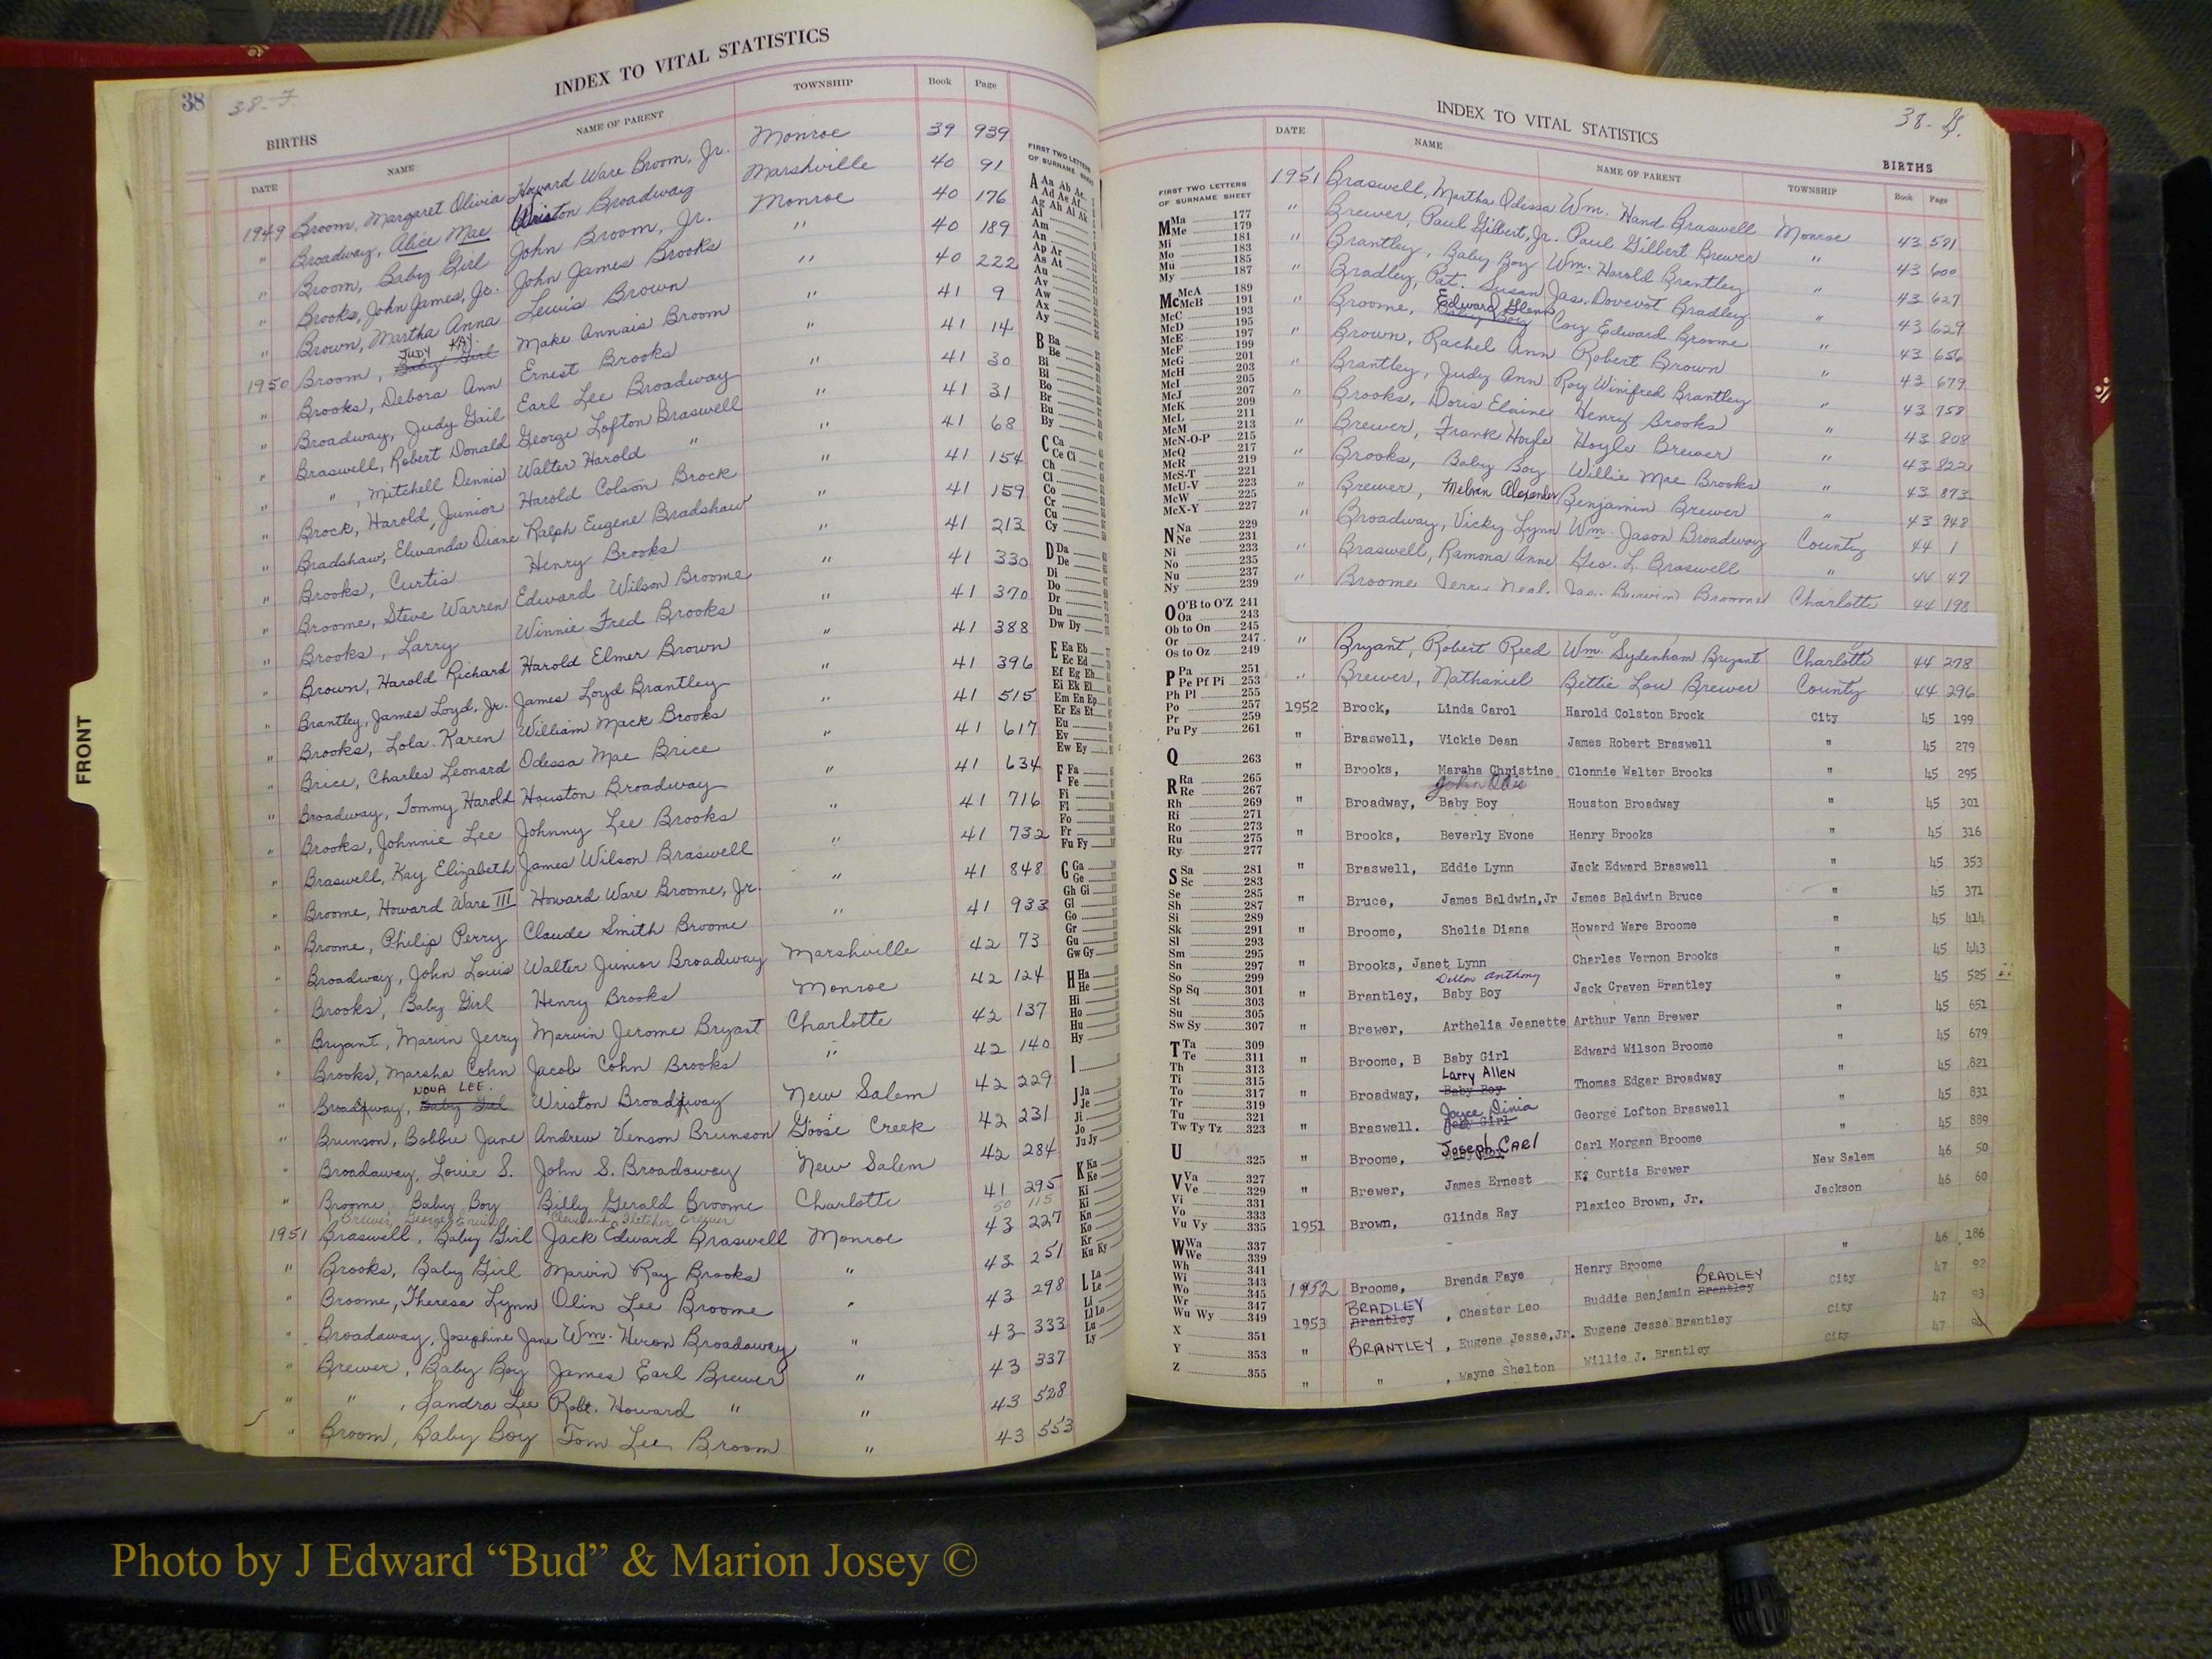 38
38-F.
INDEX TO VITAL STATISTICS
BIRTHS
DATE NAME NAME OF PARENT TOWNSHIP Book Page
1949 Broom, Margaret Olivia Howard Ware Broom, Jr. Monroe 39 939
" Broadway, Alice Mae Wriston Broadway Marshville 40 91
" Broom, Baby Girl John Broom, Jr. Monroe 40 176
" Brooks, John James, Jr. John James Brooks " 40 189
" Brown, Martha Anna Lewis Brown " 40 222
JUDY KAY
1950 Broom, Baby Girl Make Annais Broom " 41 9
" Brooks, Debora Ann Ernest Brooks " 41 14
" Broadway, Judy Gail Earl Lee Broadway " 41 30
" Braswell, Robert Donald George Lofton Braswell " 41 31
" " , Mitchell Dennis Walter Harold " " 41 68
" Brock, Harold, Junior Harold Colson Brock " 41 154
" Bradshaw, Elwanda Diane Ralph Eugene Bradshaw " 41 159
" Brooks, Curtis Henry Brooks " 41 213
" Broome, Steve Warren Edward Wilson Broome " 41 330
" Brooks, Larry Winnie Fred Brooks " 41 370
" Brown, Harold Richard Harold Elmer Brown " 41 388
" Brantley, James Loyd, Jr. James Loyd Brantley " 41 396
" Brooks, Lola Karen William Mack Brooks " 41 515
" Brice, Charles Leonard Odessa Mae Brice " 41 617
" Broadway, Tommy Harold Houston Broadway " 41 634
" Brooks, Johnnie Lee Johnny Lee Brooks " 41 716
" Braswell, Kay Elizabeth James Wilson Braswell " 41 732
" Broome, Howard Ware III Howard Ware Broome, Jr. " 41 848
" Broome, Philip Perry Claude Smith Broome " 41 933
" Broadway, John Louis Walter Junior Broadway Marshville 42 73
" Brooks, Baby Girl Henry Brooks Monroe 42 124
" Bryant, Marvin Jerry Marvin Jerome Bryant Charlotte 42 137
" Brooks, Marsha Cohn Jacob Cohn Brooks " 42 140
NOVA LEE.
" Broadway, Baby Girl Wriston Broadway New Salem 42 229
" Brunson, Bobbie Jane Andrew Venson Brunson Goose Creek 42 231
" Broadaway, Louie S. John S. Broadaway New Salem 42 284
" Broome, Baby Boy Billy Gerald Broome Charlotte 41 295
Brewer, George Ervin Cleveland Fletcher Brewer 50 115
1951 Braswell, Baby Girl Jack Edward Braswell Monroe 43 227
" Brooks, Baby Girl Marvin Ray Brooks " 43 251
" Broome, Theresa Lynn Olin Lee Broome " 43 298
" Broadaway, Josephine Jane Wm. Heron Broadaway " 43 333
" Brewer, Baby Boy James Earl Brewer " 43 337
" " , Sandra Lee Robt. Howard " " 43 528
" Broom, Baby Boy Tom Lee Broom " 43 553
FRONT
FIRST TWO LETTERS
OF SURNAME SHEET
A Aa Ab Ac
Ad Ae Af
Ag Ah Ai Ak
Al
Am
An
Ap Ar
As At
Au
Av
Aw
Ax
Ay
B Ba
Be
Bi
Bl
Bo
Br
Bu
By
C Ca
Ce Ci
Ch
Cl
Co
Cr
Cu
Cy
D Da
De
Di
Do
Dr
Du
Dw Dy
E Ea Eb
Ec Ed
Ef Eg Eh
Ei Ek El
Em En Ep
Er Es Et
Eu
Ev
Ew Ey
F Fa
Fe
Fi
Fl
Fo
Fr
Fu Fy
G Ga
Ge
Gh Gi
Gl
Go
Gr
Gu
Gw Gy
H Ha
He
Hi
Ho
Hu
Hy
I
J Ja
Je
Ji
Jo
Ju Jy
K Ka
Ke
Ki
Kl
Kn
Ko
Kr
Ku Ky
L La
Le
Li
Ll Lo
Lu
Ly
38-G.
INDEX TO VITAL STATISTICS
BIRTHS
DATE NAME NAME OF PARENT TOWNSHIP Book Page
FIRST TWO LETTERS
OF SURNAME SHEET
M Ma 177
Me 179
Mi 181
Mo 183
Mu 185
My 187
Mc McA 189
McB 191
McC 193
McD 195
McE 197
McF 199
McG 201
McH 203
McI 205
McJ 207
McK 209
McL 211
McM 213
McN-O-P 215
McQ 217
McR 219
McS-T 221
McU-V 223
McW 225
McX-Y 227
N Na 229
Ne 231
Ni 233
No 235
Nu 237
Ny 239
O O'B to O'Z 241
Oa 243
Ob to On 245
Or 247
Os to Oz 249
P Pa 251
Pe Pf Pi 253
Ph Pl 255
Po 257
Pr 259
Pu Py 261
Q 263
R Ra 265
Re 267
Rh 269
Ri 271
Ro 273
Ru 275
Ry 277
S Sa 281
Sc 283
Se 285
Sh 287
Si 289
Sk 291
Sl 293
Sm 295
Sn 297
So 299
Sp Sq 301
St 303
Su 305
Sw Sy 307
T Ta 309
Te 311
Th 313
Ti 315
To 317
Tr 319
Tu 321
Tw Ty Tz 323
U 325
V Va 327
Ve 329
Vi 331
Vo 333
Vu Vy 335
W Wa 337
We 339
Wh 341
Wi 343
Wo 345
Wr 347
Wu Wy 349
X 351
Y 353
Z 355
1951 Braswell, Martha Odessa Wm. Hand Braswell Monroe 43 591
" Brewer, Paul Gilbert, Jr. Paul Gilbert Brewer " 43 600
" Brantley, Baby Boy Wm. Harold Brantley " 43 627
" Bradley, Pat. Susan Jas. Dovevot Bradley " 43 629
Edward Glenn
" Broome, Baby Boy Coy Edward Broome " 43 656
" Brown, Rachel Ann Robert Brown " 43 679
" Brantley, Judy Ann Roy Winifred Brantley " 43 758
" Brooks, Doris Elaine Henry Brooks " 43 808
" Brewer, Frank Hoyle Hoyle Brewer " 43 822
" Brooks, Baby Boy Willie Mae Brooks " 43 873
" Brewer, Melvin Alexander Benjamin Brewer " 43 948
" Broadway, Vicky Lynn Wm. Jason Broadway County 44 1
" Braswell, Ramona Anne Geo. L. Braswell " 44 47
" Broome Jerry Neal. Jas. Broome Charlotte 44 198
" Bryant, Robert Reed Wm. Sydenham Bryant Charlotte 44 278
" Brewer, Nathaniel Bettie Lou Brewer County 44 296
1952 Brock, Linda Carol Harold Colston Brock City 45 199
" Braswell, Vickie Dean James Robert Braswell " 45 279
" Brooks, Marsha Christine Clonnie Walter Brooks " 45 295
John
" Broadway, Baby Boy Houston Broadway " 45 301
" Brooks, Beverly Evone Henry Brooks " 45 316
" Braswell, Eddie Lynn Jack Edward Braswell " 45 353
" Bruce, James Baldwin,Jr James Baldwin Bruce " 45 371
" Broome, Shelia Diana Howard Ware Broome " 45 414
" Brooks, Janet Lynn Charles Vernon Brooks " 45 443
Anthony
" Brantley, Baby Boy Jack Craven Brantley " 45 525
" Brewer, Arthelia Jeanette Arthur Vann Brewer " 45 651
" Broome, B Baby Girl Edward Wilson Broome " 45 679
Larry Allen
" Broadway, Baby Boy Thomas Edgar Broadway " 45 821
Joyce Dinia
" Braswell. Baby Girl George Lofton Braswell " 45 831
" Broome, Joseph CARl Carl Morgan Broome " 45 889
" Brewer, James Ernest K. Curtis Brewer New Salem 46 50
1951 Brown, Glinda Ray Plaxico Brown, Jr. Jackson 46 60
1952 Broome, Brenda Faye Henry Broome " 46 186
BRADLEY BRADLEY
1953 Brantley , Chester Leo Buddie Benjamin Brantley City 47 92
" BRANTLEY , Eugene Jesse,Jr. Eugene Jesse Brantley City 47 93
" " , Wayne Shelton Willie J. Brantley City 47
Photo by J Edward “Bud” & Marion Josey ©